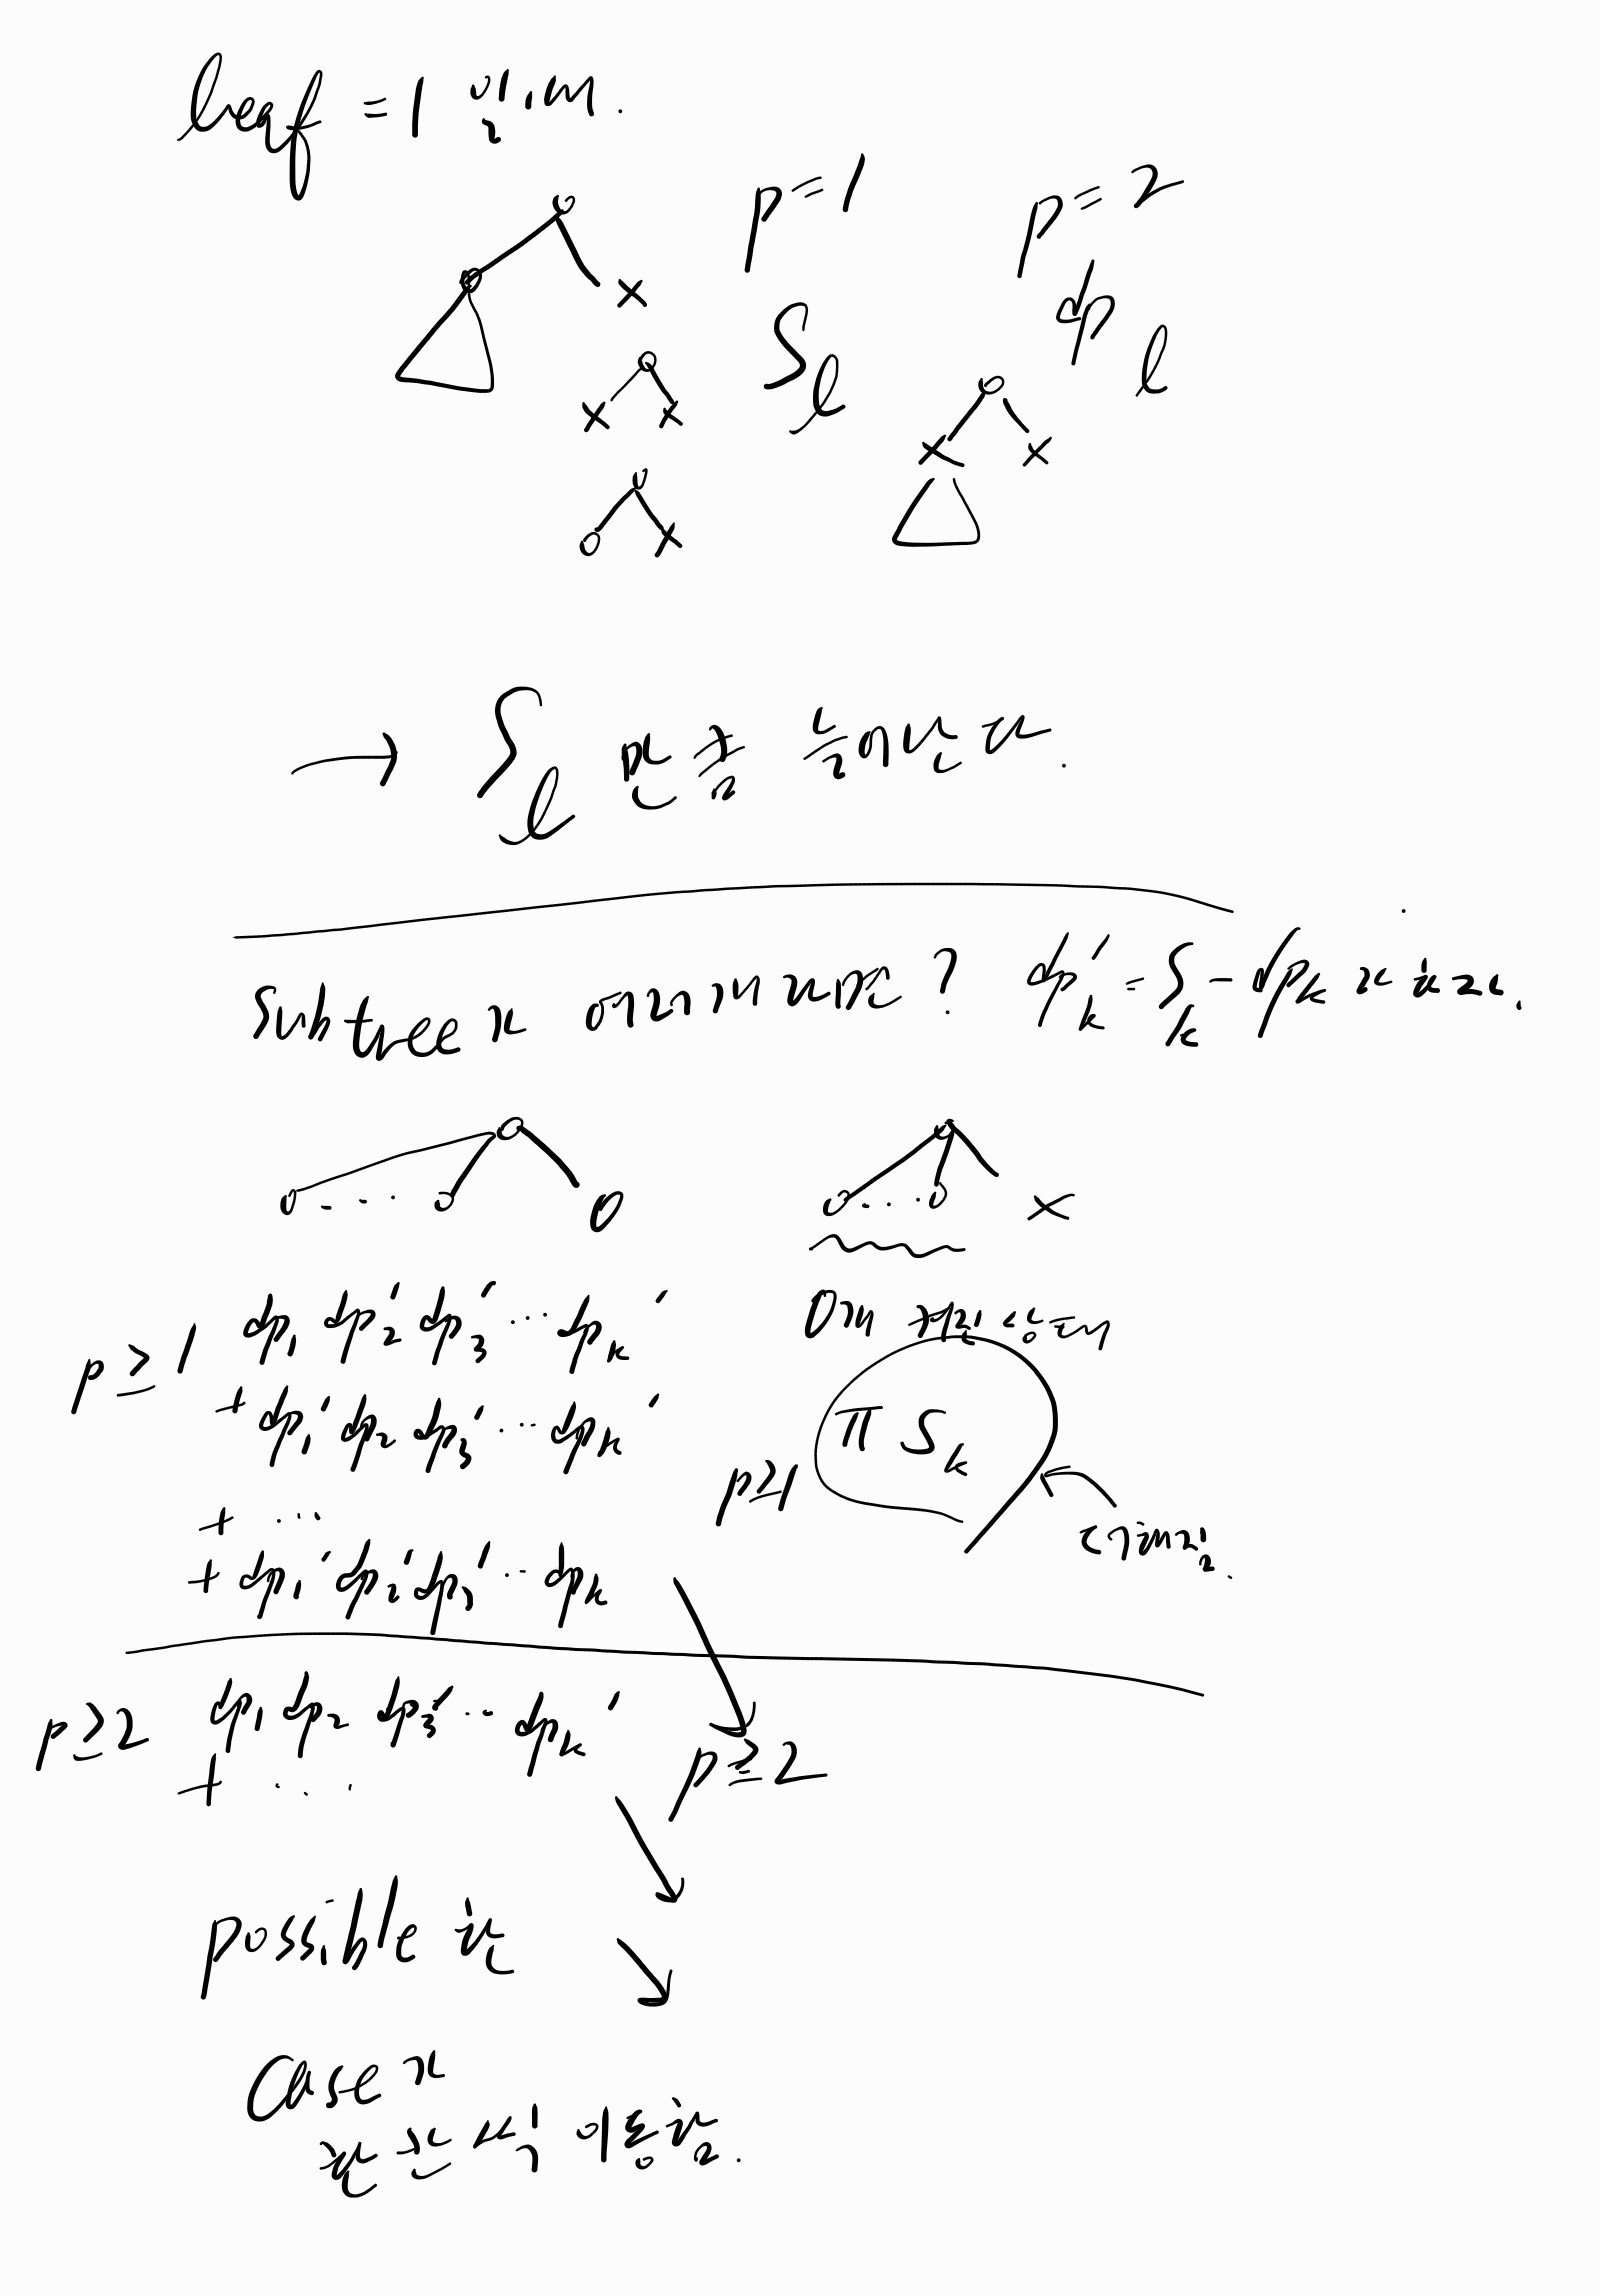 leaf = 1 일 때.
p = 1
p = 2
S l
dp l
→ S l 만큼 늘어난다.
Subtree가 여러개라면? dp'k = Sk - dpk 라 하자.
p ≥ 1
dp1 dp2' dp3' ... dpk'
+ dp1' dp2 dp3' ... dpk'
+ ...
+ dp1' dp2' dp3' ... dpk
p ≥ 1
π Sk
p ≥ 2
dp1 dp2 dp3' ... dpk'
+ ...
p ≥ 2
possible 한
case가
한 칸씩 이동함.